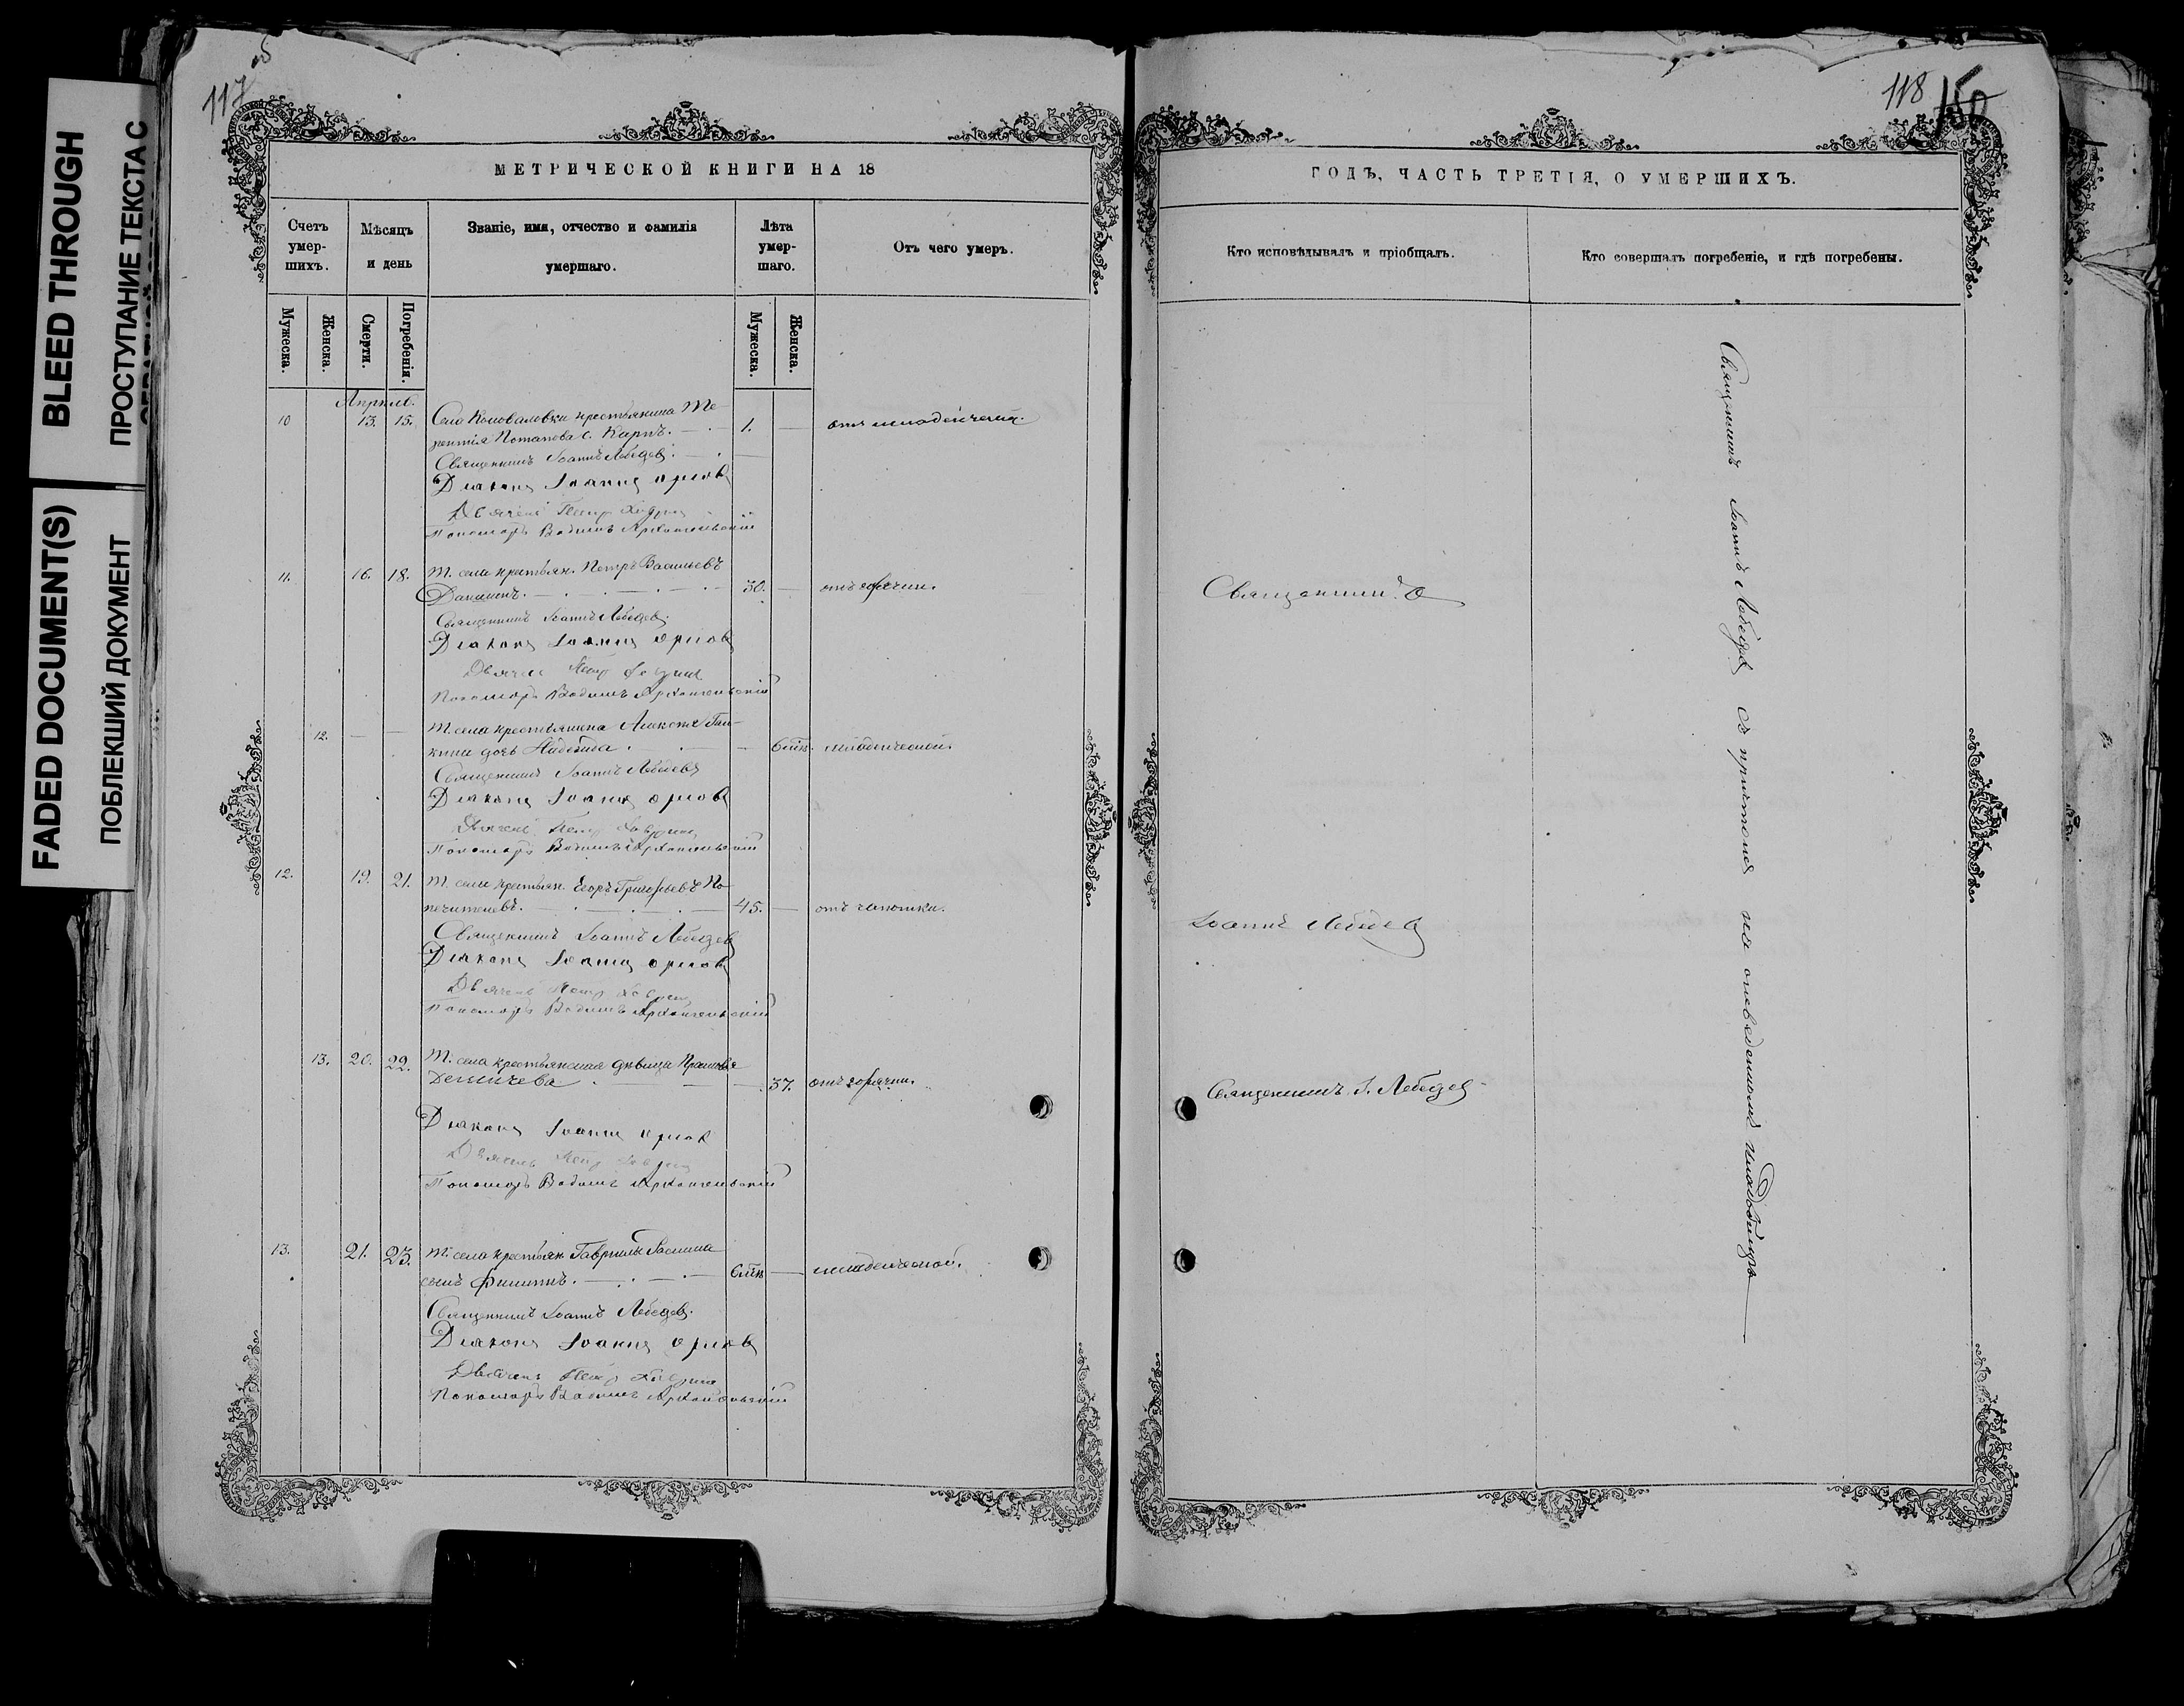 BLEED THROUGH
ПРОСТУПАНИЕ ТЕКСТА С
FADED DOCUMENT(S)
ПОБЛЕКШИЙ ДОКУМЕНТ
117
МЕТРИЧЕСКОЙ КНИГИ НА 18
Счетъ умер-шихъ.
Мѣсяцъ и день
Званіе, имя, отчество и фамилія умершаго.
Лѣта умер-шаго.
Отъ чего умеръ.
Мужеска.
Женска.
Смерти.
Погребенія.
Мужеска.
Женска.
Апрѣль.
10 13. 15. Села Коноваловки крестьянина Те-
рентія Потапова с. Карпъ. 1. — отъ младенческой.
Священникъ Іоаннъ Лебедевъ.
Діаконъ Іоаннъ Орловъ
Дьячекъ Петръ
Пономарь Вадимъ Архангельскій
11. 16. 18. Т. села крестьян. Петръ Васильевъ
30. — отъ горячки.
Священникъ Іоаннъ Лебедевъ.
Діаконъ Іоаннъ Орловъ
Дьячекъ Петръ
Пономарь Вадимъ Архангельскій
12. — — Т. села крестьянина Алексѣя Гал-
кина дочь Надежда. — 6 мѣс. младенческой.
Священникъ Іоаннъ Лебедевъ
Діаконъ Іоаннъ Орловъ
Дьячекъ Петръ
Пономарь Вадимъ Архангельскій
12. 19. 21. Т. села крестьян. Егоръ Григорьевъ По-
печителевъ. 45. — отъ чахотки.
Священникъ Іоаннъ Лебедевъ
Діаконъ Іоаннъ Орловъ
Дьячекъ Петръ
Пономарь Вадимъ Архангельскій
13. 20. 22. Т. села крестьянская дѣвица Прасковья
— 37. отъ горячки.
Діаконъ Іоаннъ Орловъ
Дьячекъ Петръ
Пономарь Вадимъ Архангельскій
13. 21. 23. Т. села крестьян. Гавріила
сынъ Филиппъ. 6 мѣс — младенческой.
Священникъ Іоаннъ Лебедевъ.
Діаконъ Іоаннъ Орловъ
Дьячекъ Петръ
Пономарь Вадимъ Архангельскій
118 150
ГОДЪ, ЧАСТЬ ТРЕТІЯ, О УМЕРШИХЪ.
Кто исповѣдывалъ и пріобщалъ.
Кто совершалъ погребеніе, и гдѣ погребены.
Священникъ
Іоаннъ Лебедевъ
Священникъ І. Лебедевъ
Священникъ Іоаннъ Лебедевъ съ причтомъ на отведенномъ кладбищѣ